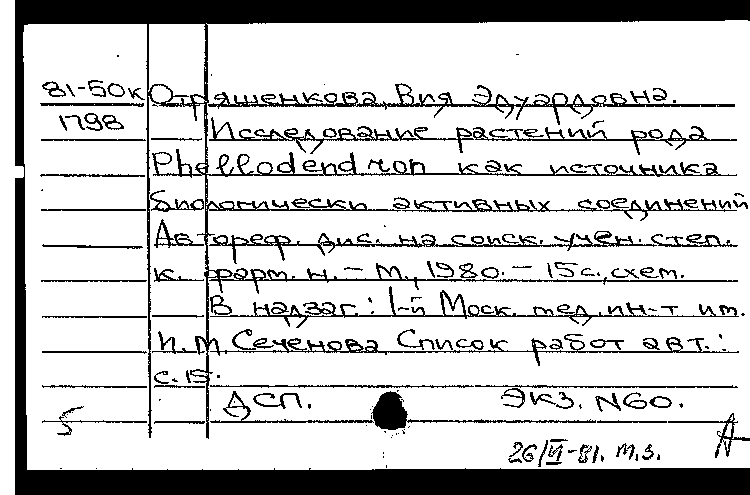 81-50к Отряшенкова, Вия Эдуардовна.
1798 Исследование растений рода
Phellodendron как источника
биологически активных соединений
Автореф. дис. на соиск. учен. степ.
к. фарм. н. - М., 1980. - 15 с., схем.
В надзаг.: 1-й Моск. мед. ин-т им.
И. М. Сеченова. Список работ авт.:
с. 15.
ДСП. Экз. N60.
5
26/VI-81. м.з. А-